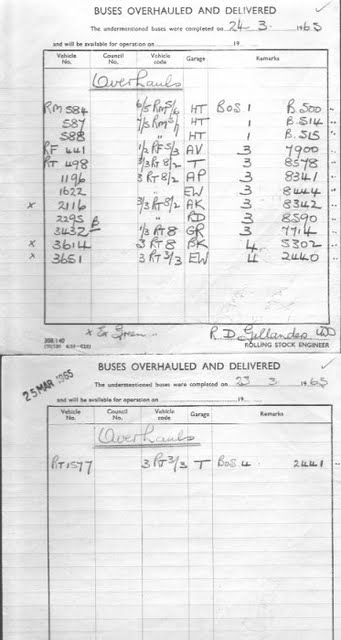 BUSES OVERHAULED AND DELIVERED
The undermentioned buses were completed on 24 3 1965
and will be available for operation on 19
Vehicle No. Council No. Vehicle code Garage Remarks
Overhauls
RM 584 6/5 RM5/6 HT BOS 1 B.500
587 7/5 RM5/7 HT 1 B.514
588 " HT 1 B.515
RF 441 1/2 RF5/3 AV 3 7900
RT 498 3/3 RT8/2 T 3 8578
1196 3 RT8/2 AP 3 8341
1622 " EW 3 8444
x 2116 3/3 RT8/2 AK 3 8342
2295 " RD 3 8590
3432 B 1/3 RT8 GR 3 7714
x 3614 3 RT8 BK 4 5302
x 3651 3 RT3/3 EW 4 2440
x Ex Green
ROLLING STOCK ENGINEER
25 MAR 1965
BUSES OVERHAULED AND DELIVERED
The undermentioned buses were completed on 23 3 1965
and will be available for operation on 19
Vehicle No. Council No. Vehicle code Garage Remarks
Overhauls
RT1577 3 RT3/3 T BOS 4 2441